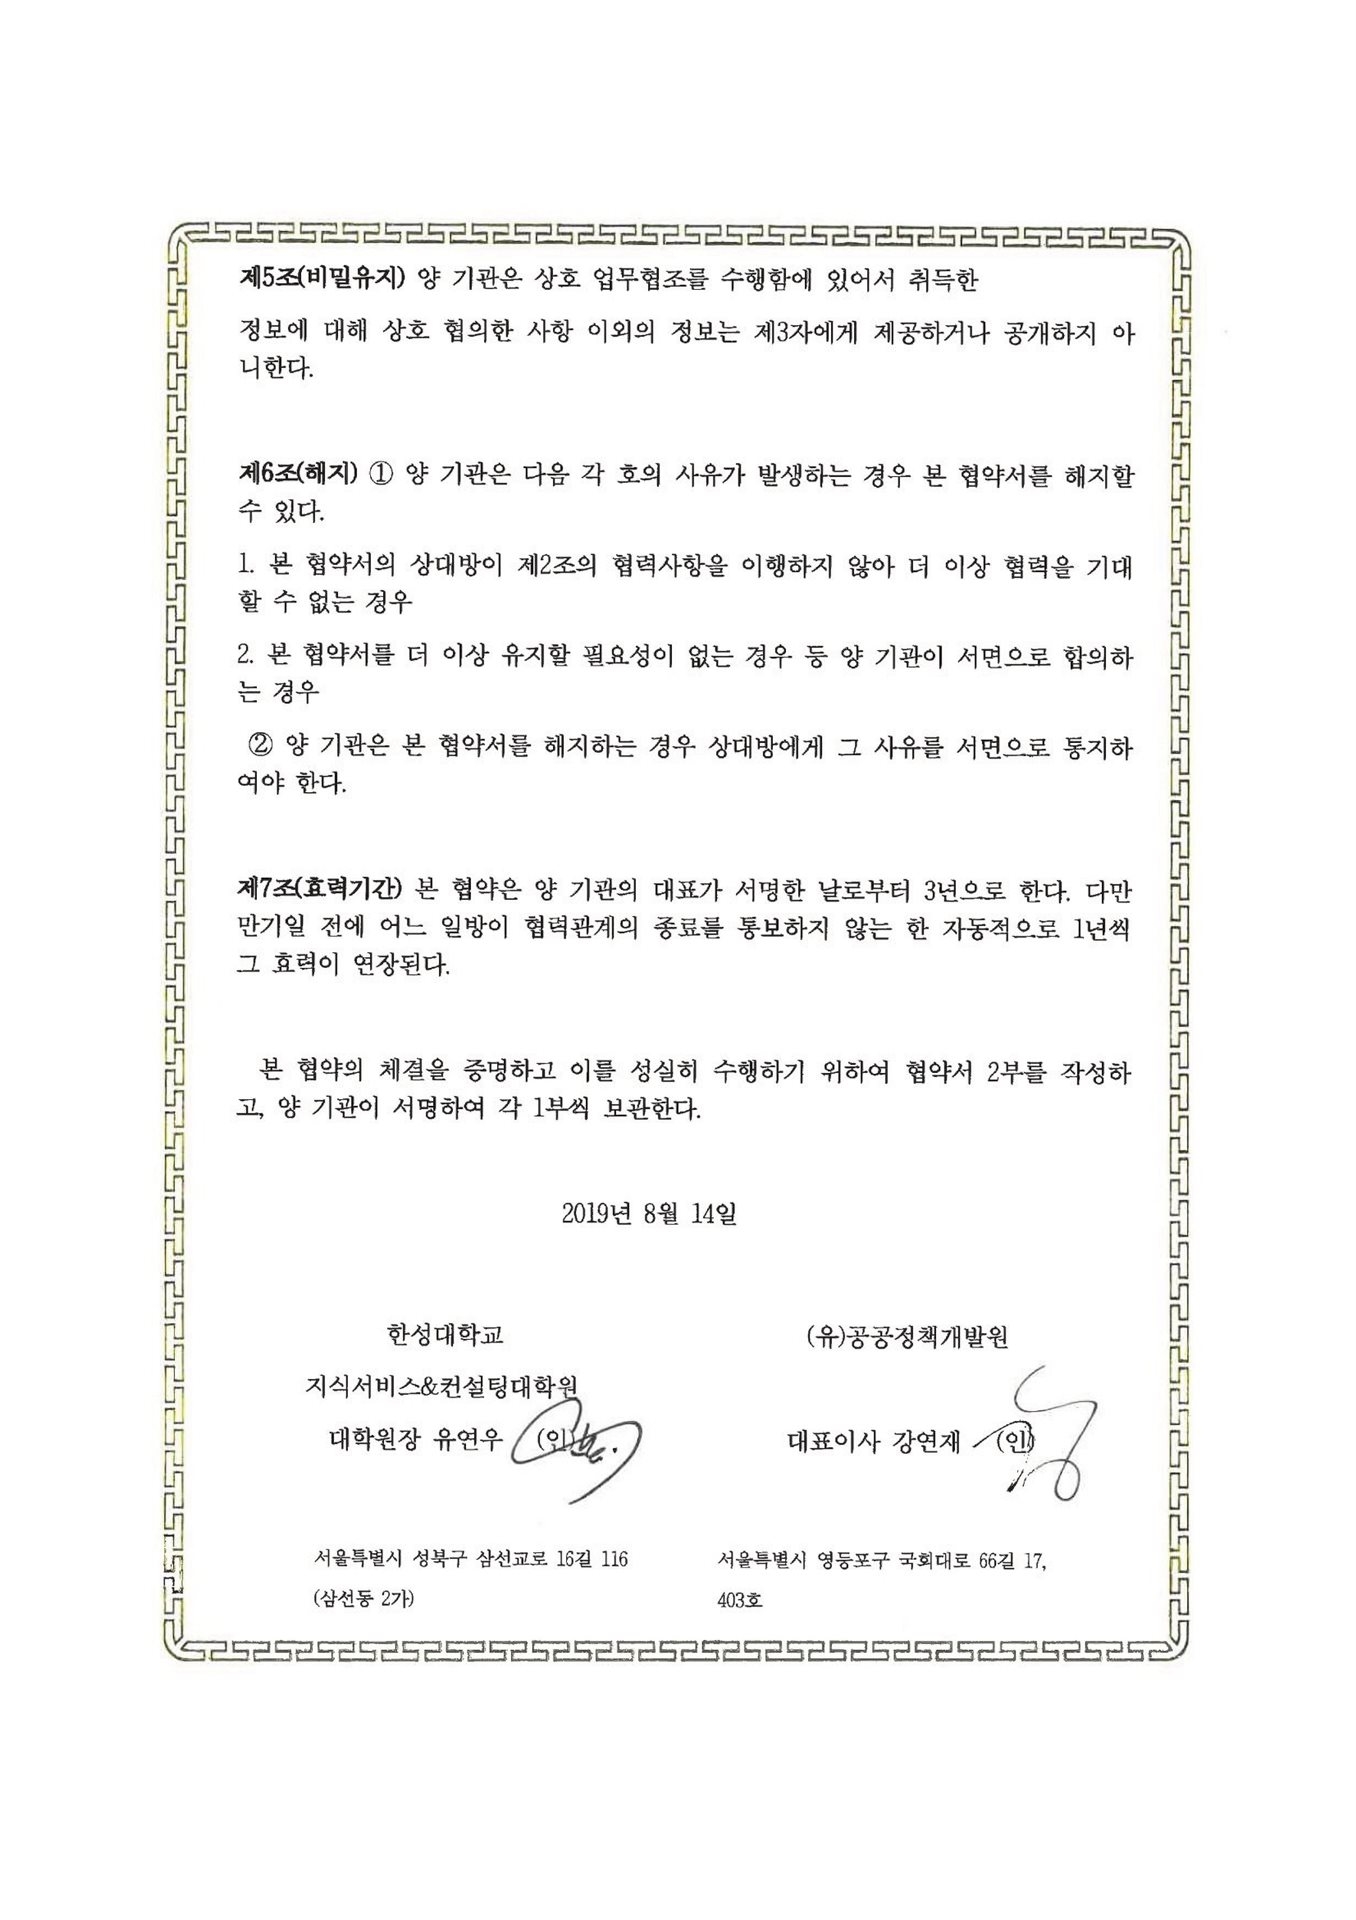 제5조(비밀유지) 양 기관은 상호 업무협조를 수행함에 있어서 취득한
정보에 대해 상호 협의한 사항 이외의 정보는 제3자에게 제공하거나 공개하지 아
니한다.
제6조(해지) ① 양 기관은 다음 각 호의 사유가 발생하는 경우 본 협약서를 해지할
수 있다.
1. 본 협약서의 상대방이 제2조의 협력사항을 이행하지 않아 더 이상 협력을 기대
할 수 없는 경우
2. 본 협약서를 더 이상 유지할 필요성이 없는 경우 등 양 기관이 서면으로 합의하
는 경우
② 양 기관은 본 협약서를 해지하는 경우 상대방에게 그 사유를 서면으로 통지하
여야 한다.
제7조(효력기간) 본 협약은 양 기관의 대표가 서명한 날로부터 3년으로 한다. 다만
만기일 전에 어느 일방이 협력관계의 종료를 통보하지 않는 한 자동적으로 1년씩
그 효력이 연장된다.
본 협약의 체결을 증명하고 이를 성실히 수행하기 위하여 협약서 2부를 작성하
고, 양 기관이 서명하여 각 1부씩 보관한다.
2019년 8월 14일
한성대학교
지식서비스&컨설팅대학원
대학원장 유연우 (인)
서울특별시 성북구 삼선교로 16길 116
(삼선동 2가)
(유)공공정책개발원
대표이사 강연재 (인)
서울특별시 영등포구 국회대로 66길 17,
403호